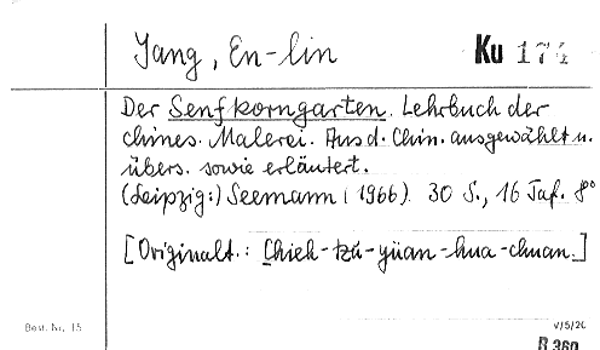 Yang, En-lin
Ku 174
Der Senfkorngarten. Lehrbuch der
chines. Malerei. Aus d. Chin. ausgewählt u.
übers. sowie erläutert.
(Leipzig:) Seemann (1966). 30 S., 16 Taf. 8°
[Originalt.: Chieh-tzŭ-yüan-hua-chuan.]
Best. Nr. 15
V/5/26
B 360